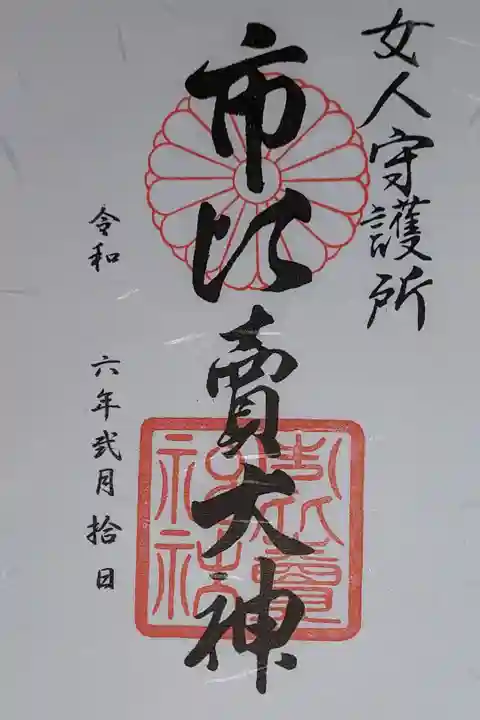 女人守護所
市比賣大神
市比賣神社
令和 六年弐月拾日